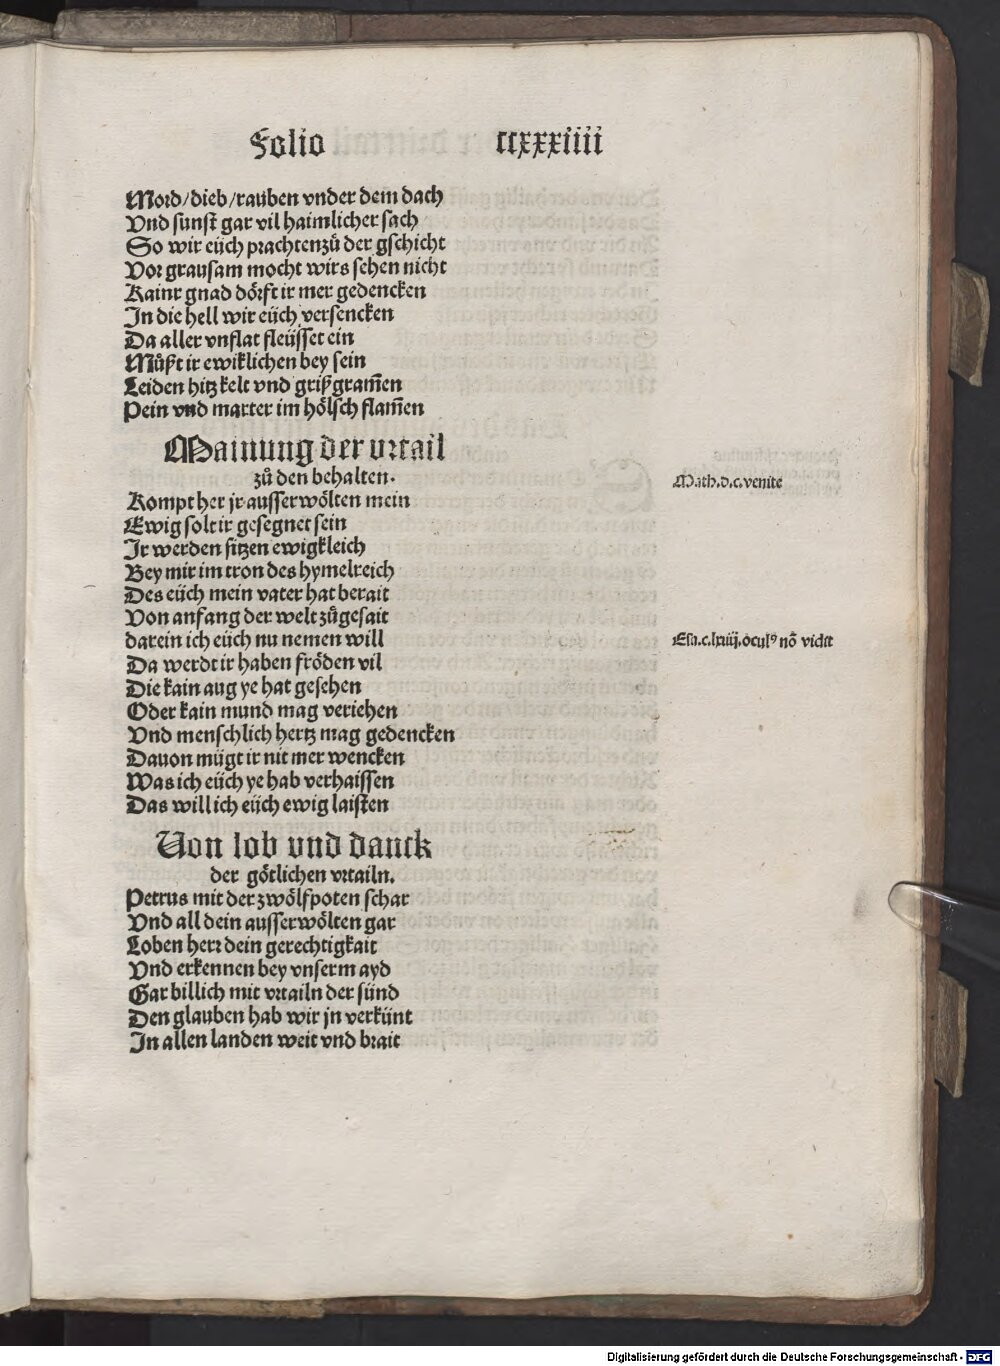 Folio ccxxxiiii
Mord/dieb/rauben vnder dem dach
Vnd sunst gar vil haimlicher sach
So wir eüch prachten zů der gschicht
Vor grausam mocht wirs sehen nicht
Kainr gnad dörft ir mer gedencken
In die hell wir eüch versencken
Da aller vnflat fleüsset ein
Můßt ir ewiklichen bey sein
Leiden hitz kelt vnd grißgram̄en
Pein vnd marter im hölsch flam̄en
Mainung der vrtail
zů den behalten.
Kompt her jr ausserwölten mein
Math.d.c.venite
Ewig solt ir gesegnet sein
Ir werden sitzen ewigkleich
Bey mir im tron des hymelreich
Des eüch mein vater hat berait
Von anfang der welt zůgesait
darein ich eüch nu nemen will
Esa.c.lxiiij.oculꝰ nō vidit
Da werdt ir haben fröden vil
Die kain aug ye hat gesehen
Oder kain mund mag veriehen
Vnd menschlich hertz mag gedencken
Dauon mügt ir nit mer wencken
Was ich eüch ye hab verhaissen
Das will ich eüch ewig laisten
Von lob vnd danck
der götlichen vrtailn.
Petrus mit der zwölfpoten schar
Vnd all dein ausserwölten gar
Loben herr dein gerechtigkait
Vnd erkennen bey vnserm ayd
Gar billich mit vrtailn der sünd
Den glauben hab wir jn verkünt
In allen landen weit vnd brait
Digitalisierung gefördert durch die Deutsche Forschungsgemeinschaft - DFG